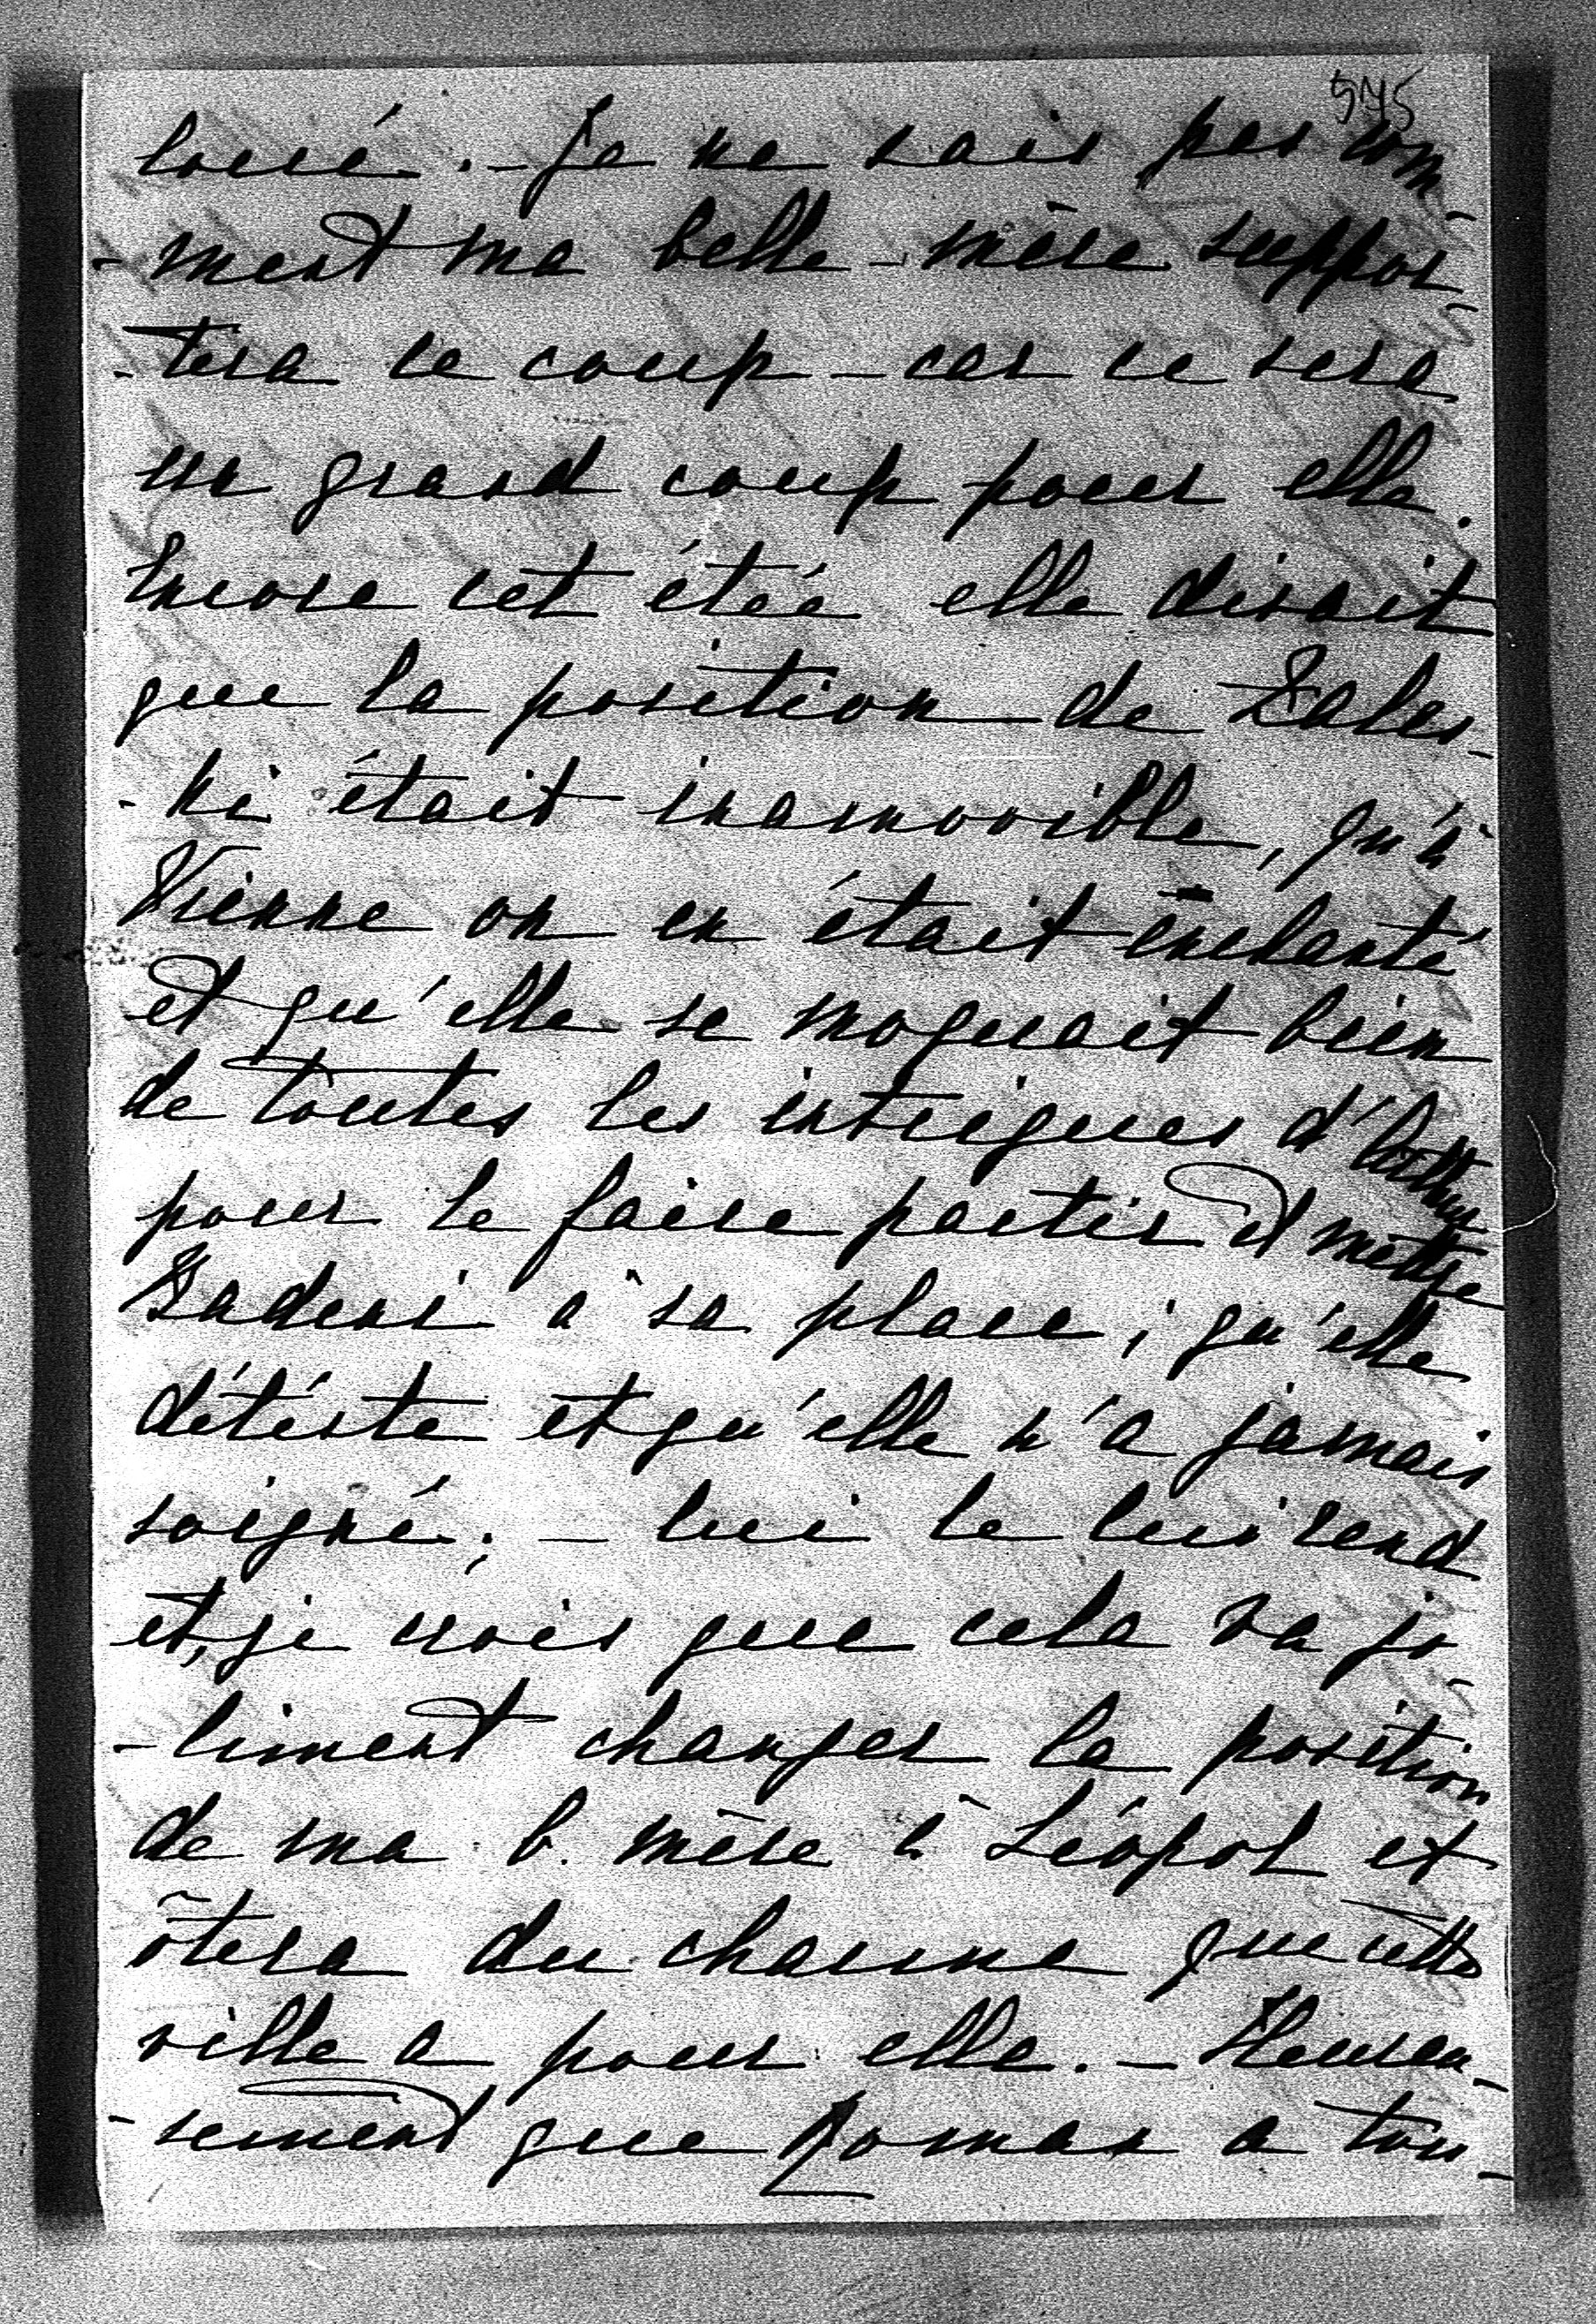 575
loué. - Je ne sais pas com-
- ment ma belle-mère suppor-
- tera ce coup - car ce sera
un grand coup pour elle.
Encore cet étée elle disait
que la position de Zales-
- ki était inamovible, qu'à
Vienne on en était enchanté
et qu'elle se moquait bien
de toutes les intrigues d'Arthur
pour le faire partir et mettre
Badeni à sa place, qu'elle
déteste et qu'elle n'a jamais
soigné; - lui le lui rend
et, je crois que cela va jo-
- liment changer la position
de ma b. mère à Léopol et
ôtera du charme que cette
ville a pour elle. - Heureu-
- sement que Roman a tou-